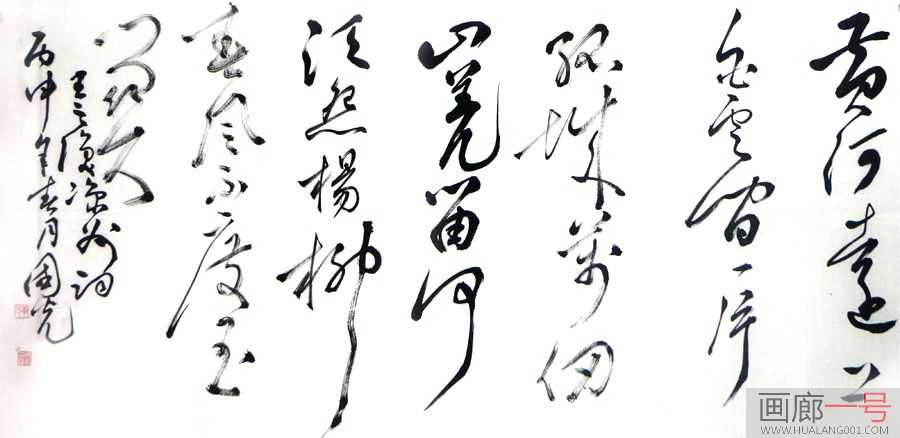 黄河遠上
白雲间一片
孤城萬仞
山羌笛何
須怨楊柳
春風不度玉
门關
王之渙凉州詞
丙申年春月国光
画廊一号
WWW.HUALANG001.COM